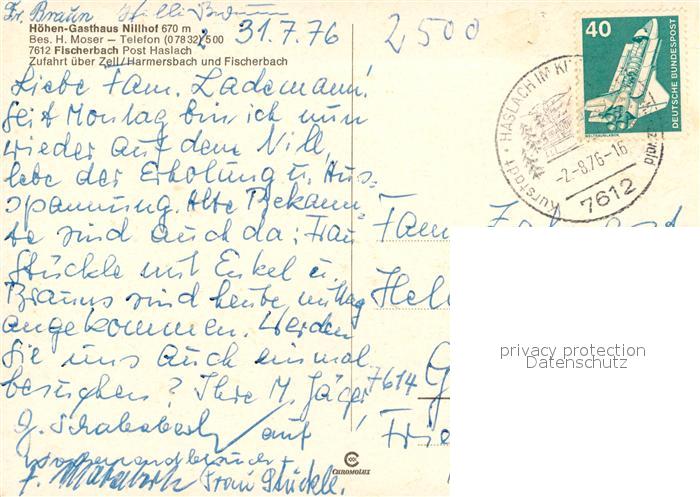 Dr. Braun
Höhen-Gasthaus Nillhof 670 m
Bes. H. Moser – Telefon (07832) 500
7612 Fischerbach Post Haslach
Zufahrt über Zell/Harmersbach und Fischerbach
31.7.76
2500
Liebe Fam. Lademann!
Seit Montag bin ich nun
wieder auf dem Nill,
lebe der Erholung u. Aus-
spannung. Alte Bekann-
te sind auch da: Frau
Stückle mit Enkel u.
Brauns sind heute mittag
angekommen. Werden
Sie uns auch einmal
besuchen? Ihre M. Jäger
auf
Frau Stückle.
40
DEUTSCHE BUNDESPOST
WELTRAUMLABOR
HASLACH IM KI
-2.-8.76-16
7612
Kurstadt
Fam.
Hel
7614 G
Frie
CHROMOLUX
privacy protection
Datenschutz